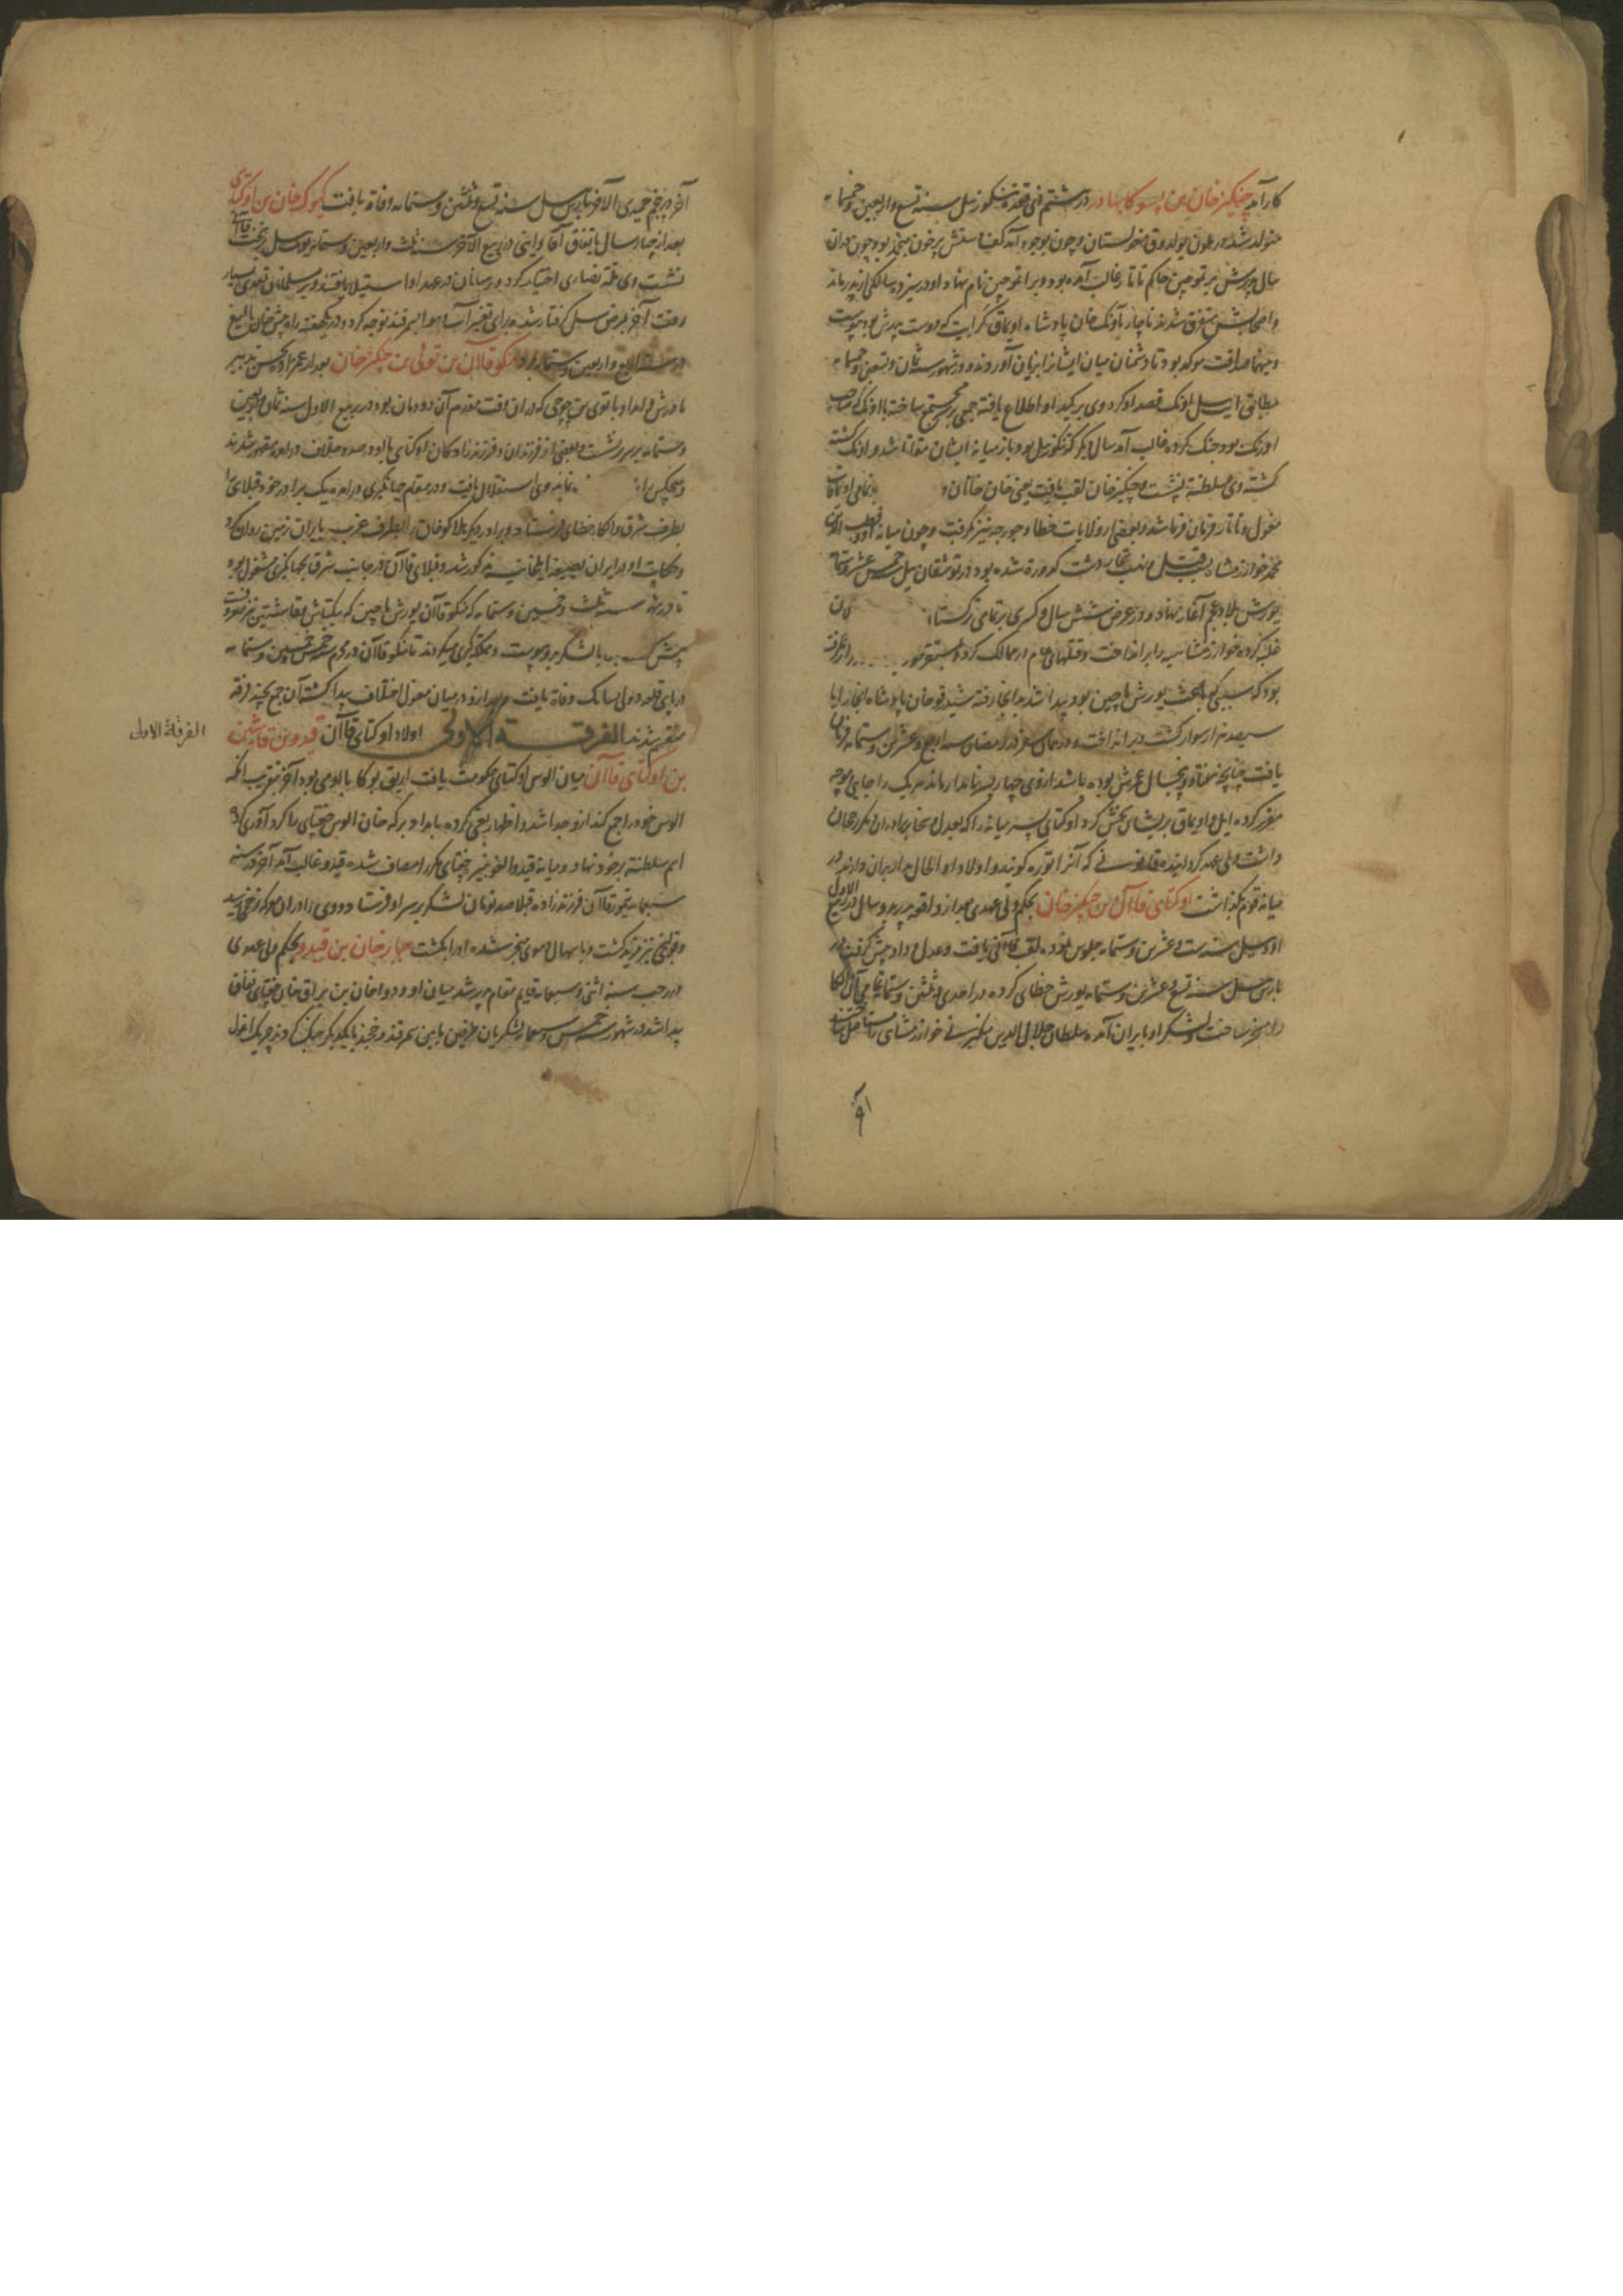 کارآمد چنگیز خان بن یسوکا بهادر در بیستم ذی قعده تنکوز ئیل سنه تسع و اربعین و خمسمائه
متولد شد در یلون یولدوق مغولستان و چون بوجود آمد کف دستش پر خون منجمد بود چون در آن
سال پدرش بر تموجین حاکم تاتار غالب آمده بود ویرا تموجین نام نهاد و او در سیزده سالگی از پدر ماند
و اصحابش متفرق شدند ناچار با اونک خان پادشاه اویماق کرایت که دوست پدرش بود پیوست
و میانه صداقت موکد بود تا دشمنان میان ایشان را بزیان آوردند و در شهور سنه ثمان و تسعین و خمسمائه
مطابق ئیل اونک قصد او کرد وی بر کید او اطلاع یافته جمعی مجتمع ساخته با اونک که صاحب
اورنک بود جنک کرده غالب آمد سال دیگر که تنکوز ئیل بود باز میانه ایشان مقاتله شد و اونک کشته
کشته وی بسلطنة بنشست و چنگیز خان لقب یافت یعنی خان خانان و بر تمامی اویماقات
مغول و تاتار فرمان فرما شد و بعضی از ولایات خطا و جورجه نیز بگرفت و چون میانه او و قطب الدین
محمد خوارزمشاه بسبب قتل و نهب تجار وحشت کدورة شده بود در توشقان ئیل خمس عشر و ستمائه
یورش بلاد عجم آغاز نهاد و در عرض شش سال و کسری بر تمامی ترکستان
غلبه کرده خوارزمشاهیه را برانداخت و قتلهای عام در ممالک کرد و بیتقوز
بود که سببی که باعث یورش ماچین بود پیدا شد بدانجا رفته شیدرقو خان پادشاه آنجا را با
سیصد هزار سوار کشت و برانداخت و در همان سفر در رمضان سنه اربع و عشرین و ستمائه فرمان
یافت چنانچه هفتاد و پنجسال عمرش بوده باشد از وی چهار پسر نامدار ماند هر یک را جایی و یورت
مقرر کرده ایل و اویماق بریشان بخش کرد اوکتای پسر میانه را که بعدل و سخا بر برادران دیگر رجحان
داشت ولی عهد کردانیده قانونی که آنرا توره کویند و اولاد او الحال مدار بر آن دارند در
میانه قوم بگذاشت اوکتای قاآن بن چنگیز خان بحکم ولی عهدی بعد از واقعه پدر بدو سال در ربیع الاول
اود ئیل سنه ست و عشرین و ستمائه جلوس نموده لقب قاآنی یافت و عدل و داد پیش کرفت در
بارس ئیل سنه تسع و عشرین و ستمائه یورش خطای کرده در احدی و ثلثین و ستمائه تمامی آن الکا
را مسخر ساخت و لشکر او بایران آمده سلطان جلال الدین منکبرنی خوارزمشاهی را مستاصل ساختند
آخر در پنجم جمیدی الآخر بارس ئیل سنه تسع و ثلثین و ستمائه وفاة یافت کیوک خان بن اوکتای قاآن
بعد از چهار سال باتفاق آقا و اینی در ربیع الآخر سنه ثلث و اربعین و ستمائه یونت ئیل بر تخت
نشست وی ملة نصاری اختیار کرد و ترسایان در عهد او استیلا یافتند و بر مسلمانان تعدی بسیار
رفت آخر بمرض سل کرفتار شده برای تغییر آب و هوا بسمرقند توجه کرد و در یکهفته راه بیش خان بالیغ
در سنه اربع و اربعین و ستمائه بمرد منکو قاآن بن تولی بن چنگیز خان بعد از عم زاده بحسن تدبیر
مادرش و امداد باتوی بن جوجی که در آن وقت مقدم آن دودمان بود در ربیع الاول سنه ثمان و اربعین
و ستمائه بر سریر نشست و بعضی از فرزندان و فرزند زادکان اوکتای با او در صدد خلاف در آمده مقهور شدند
و هیچکس را نمانده وی استقلال یافت و در مقام جهانگیری در آمده یک برادر خود قبلای را
بطرف شرق و الکاء خطای فرستاد و برادر دیگر هلاکو خان را بطرف غرب بایران زمین روان کرد
و حکایات او در ایران بصیغه ایلخانیه مذکور شد و قبلای قاآن در جانب شرق بجهانگیری مشغول بود
تا در شهور سنه ثلث و خمسین و ستمائه که منکو قاآن یورش ماچین که بیکتاش نیز معروفست
پیش با لشکر بدو پیوست و مملکتگیری میکردند تا منکو قاآن در محرم سنه خمس و خمسین و ستمائه
در پای قلعه دولی سانک وفاة یافت و بعد از او در میان مغول اختلاف پیدا کشته آن جمع بچند فرقه
منقسم شدند الفرقة الاولی اولاد اوکتای قاآن قیدو بن قاشین
بن اوکتای قاآن میان الوس اوکتای حکومت یافت اریق بوکا با او می بود آخر بتقریب آنکه
الوس خود را جمع کند از و جدا شد و اظهار یاغی کرده بامداد برکه خان الوس جغتای را کرد آوری کرد
اسم سلطنة بر خود نهاد و میانه قیدو و الغو نبیره جغتای مکرر مصاف شده قیدو غالب آمد آخر در سنه
سبعمائه تیمور قاآن فرزند زاده قبلا صد تومان لشکر بر سر او فرستاد و وی را در آن معرکه زخمی رسید
و قولنج نیز مزید کشت و با سهال دموی منجر شده او را بکشت جبار خان بن قیدو بحکم ولی عهدی
در رجب سنه اثنی و سبعمائه قایم مقام پدر شد میان او و دوا خان بن براق خان جغتای نفاق
پیدا شد در شهور سنه خمس و سبعمائه لشکریان طرفین ما بین سمرقند و خجند با یکدیگر جنک کردند چریک اغول
الفرقة الاولی